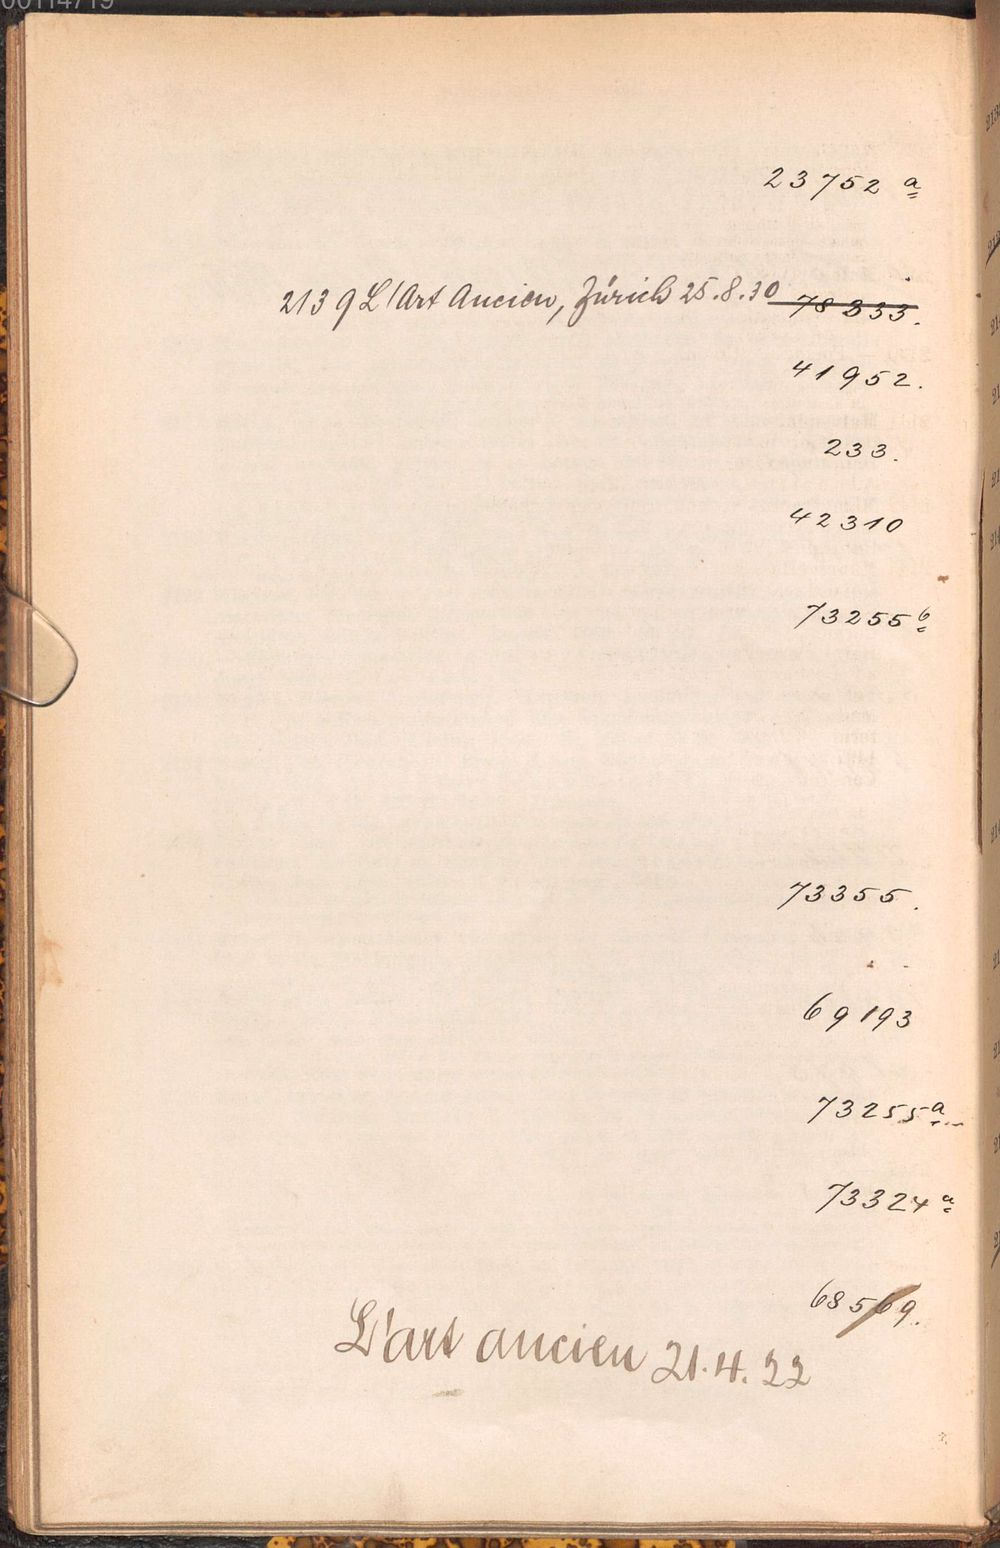 00114719
23752 a
2139 L'Art Ancien, Zürich 25.8.30 78333.
41952.
233.
42310
73255 b
73355.
69193
73255 a
73324 a
68569.
L'art ancien 21.4.22